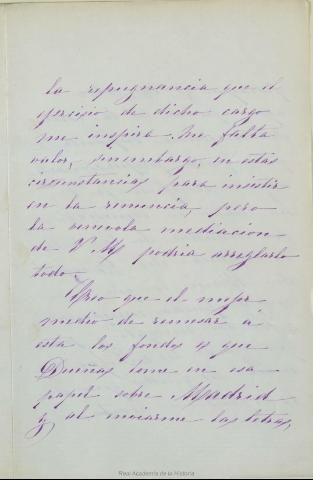 la repugnancia que el
ejercisio de dicho cargo
me inspira. Me falta
valor, sin embargo, en estas
circunstancias para insistir
en la renuncia, pero
la benevola mediacion
de V. M. podria arreglarlo
todo.
Creo que el mejor
medio de remesar á
esta los fondos es que
Dueñas tome en esa
papel sobre Madrid
y, al enviarme las letras,
Real Academia de la Historia